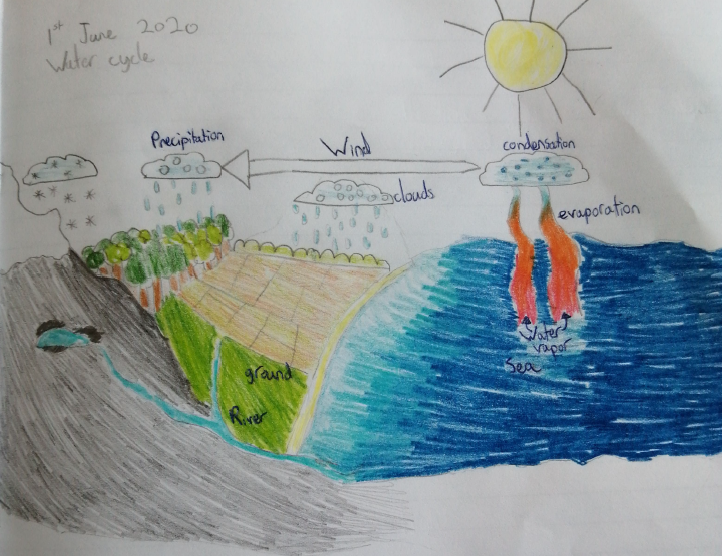 1st June 2020
Water cycle
Precipitation
Wind
condensation
clouds
evaporation
Water
vapor
Sea
ground
River